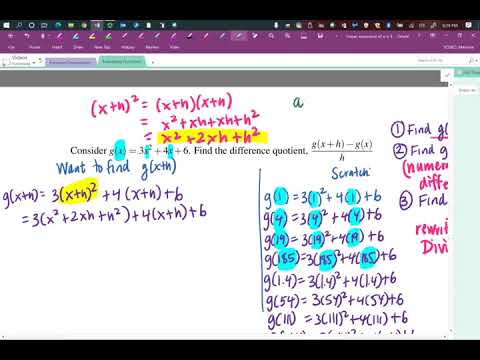 (x+h)² = (x+h)(x+h)
= x² + xh + xh + h²
= x² + 2xh + h²
a
Consider g(x) = 3x² + 4x + 6. Find the difference quotient, g(x+h) − g(x) / h
Want to find g(x+h)
g(x+h) = 3(x+h)² + 4(x+h) + 6
= 3(x² + 2xh + h²) + 4(x+h) + 6
Scratch:
g(1) = 3(1)² + 4(1) + 6
g(4) = 3(4)² + 4(4) + 6
g(19) = 3(19)² + 4(19) + 6
g(185) = 3(185)² + 4(185) + 6
g(1.4) = 3(1.4)² + 4(1.4) + 6
g(54) = 3(54)² + 4(54) + 6
g(111) = 3(111)² + 4(111) + 6
① Find g(
② Find g(
(num
differ
③ Find
rewri
Divi